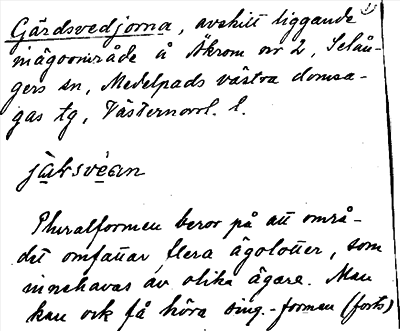 Gärdsvedjorna, avskilt liggande 1)
inägoområde å Åkrom nr 2, Selån-
gers sn, Medelpads västra domsa-
gas tg, Västernorrl. l.
Pluralformen beror på att områ-
det omfattar flera ägolotter, som
innehavas av olika ägare. Man
kan ock få höra sing.-formen (forts)